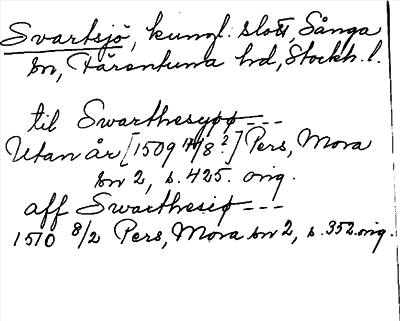 Svartsjö, kungl. slott, Sånga
sn, Färentuna hd, Stockh. l.
til Swarthesyøø ---
Utan år [1509 14/8?] Pers, Mora
sn 2, s. 425. orig.
aff Swarthesiø ---
1510 8/2 Pers, Mora sn 2, s. 352 orig.